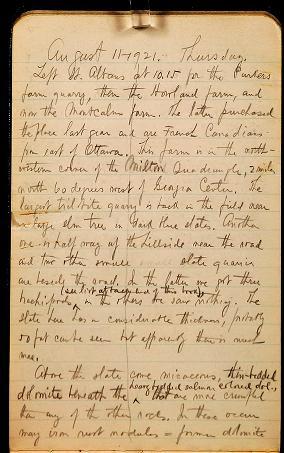 August 11-1921. Thursday.
Left St. Albans at 10.15 for the Parkers
farm quarry, then the Howland farm, and
now the Montcalm farm. The latter purchased
the place last year and are French Canadians
from east of Ottawa. This farm is in the north-
western corner of the Milton Quadrangle, 2 miles
north 60 degrees west of Georgia Center. The
largest trilobite quarry is back in the field near
a large elm tree in hard blue slates. Another
one is half way up the hillside near the road
and two other small slate quarries
are beside the road. In the latter we got three
brachiopods, (see list at back end of this book) in the others we saw nothing. The
slate here has a considerable thickness, probably
50 feet can be seen but apparently there is much
more.
Above the slate come micaceous, thin-bedded
dolomite beneath the heavy bedded salmon colored dol.
that are more crumpled
than any of the other rocks. In these occur
many iron rust nodules = former dolomite